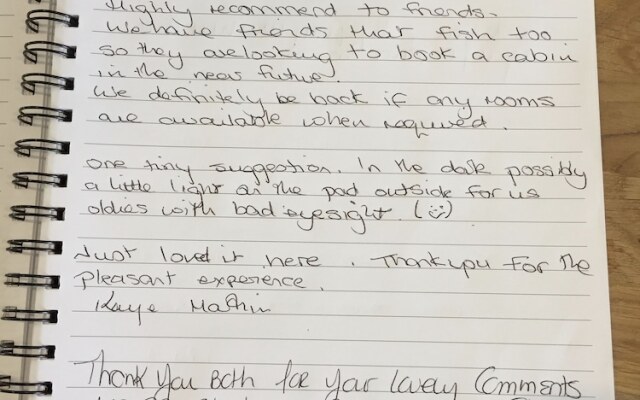 Highly recommend to friends.
We have friends that fish too
so they are looking to book a cabin
in the near future.
We definitely be back if any rooms
are available when required.
one tiny suggestion. In the dark possibly
a little light on the pad outside for us
oldies with bad eyesight. (☺)
Just loved it here. Thankyou for the
pleasant experience.
Kaye
Thank you Both for your lovely Comments